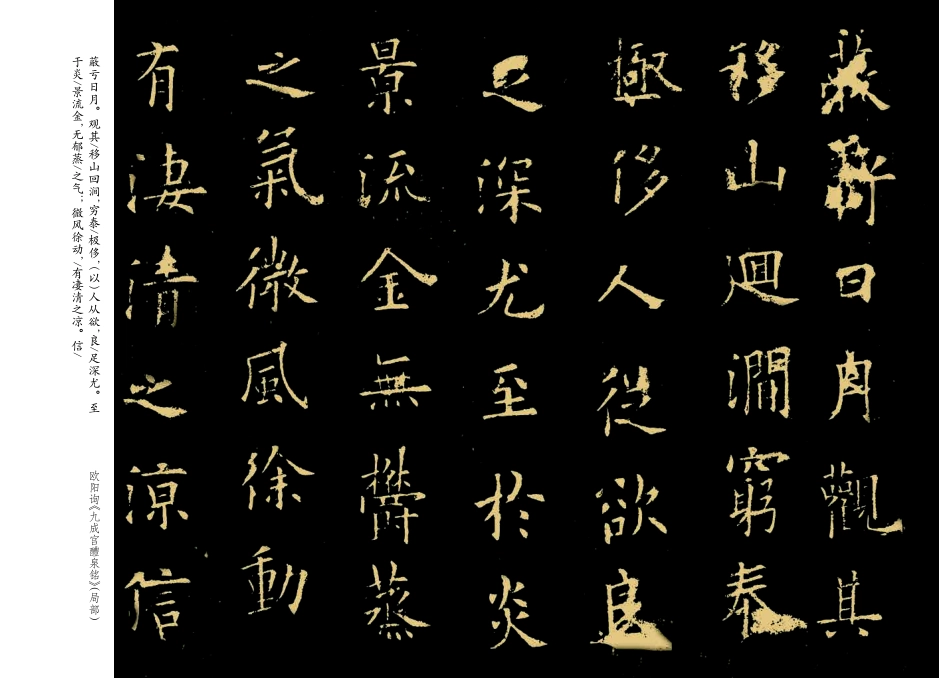 蔽虧日月觀其
移山迴澗窮泰
極侈人從欲良
足深尤至於炎
景流金無鬱蒸
之氣微風徐動
有淒清之涼信
蔽亏日月。观其/移山回涧，穷泰/极侈，（以）人从欲，良/足深尤。至
于炎/景流金，无郁蒸/之气；微风徐动，/有凄清之凉。信/
欧阳询《九成宫醴泉铭》（局部）